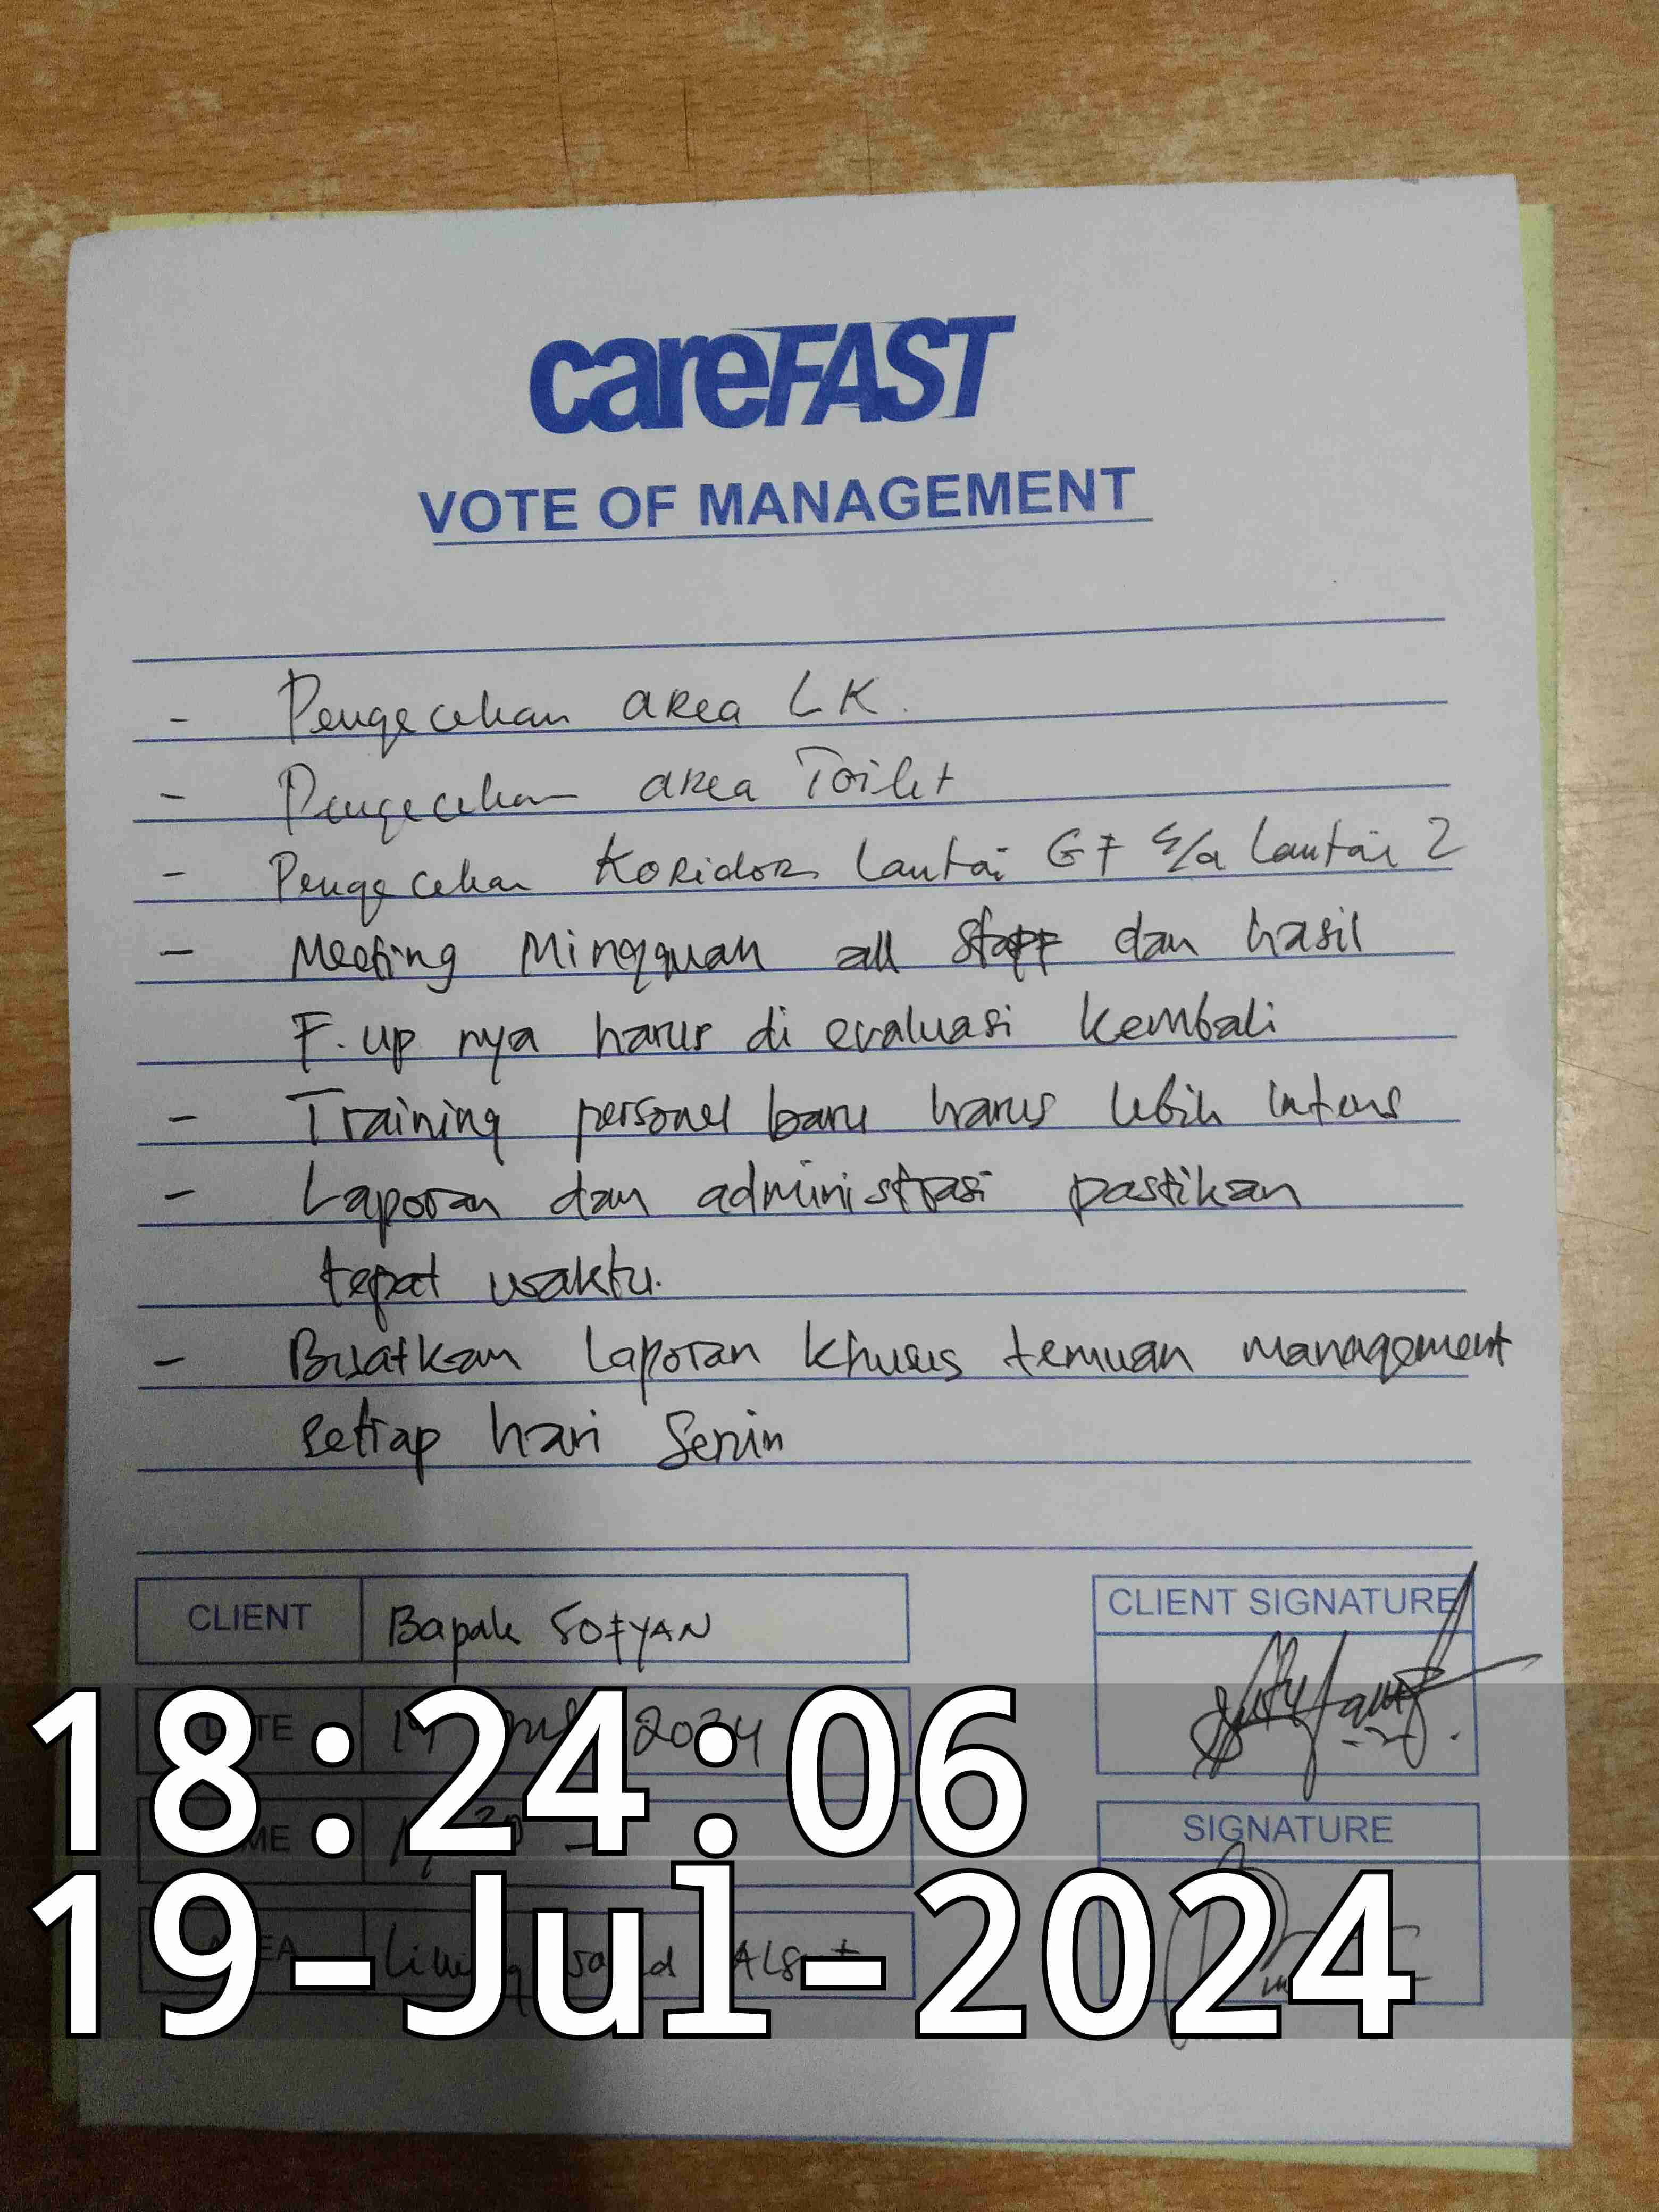 careFAST
VOTE OF MANAGEMENT
- Pengecekan area LK.
- Pengecekan area Toilet
- Pengecekan Koridor Lantai GF s/d Lantai 2
- Meeting Mingguan all staff dan hasil
F. up nya harus di evaluasi kembali
- Training personel baru harus lebih intens
- Laporan dan administrasi pastikan
tepat waktu.
- Buatkan laporan khusus temuan management
setiap hari Senin
CLIENT Bapak SOFYAN
CLIENT SIGNATURE
19 2024
SIGNATURE
18:24:06
19-Jul-2024